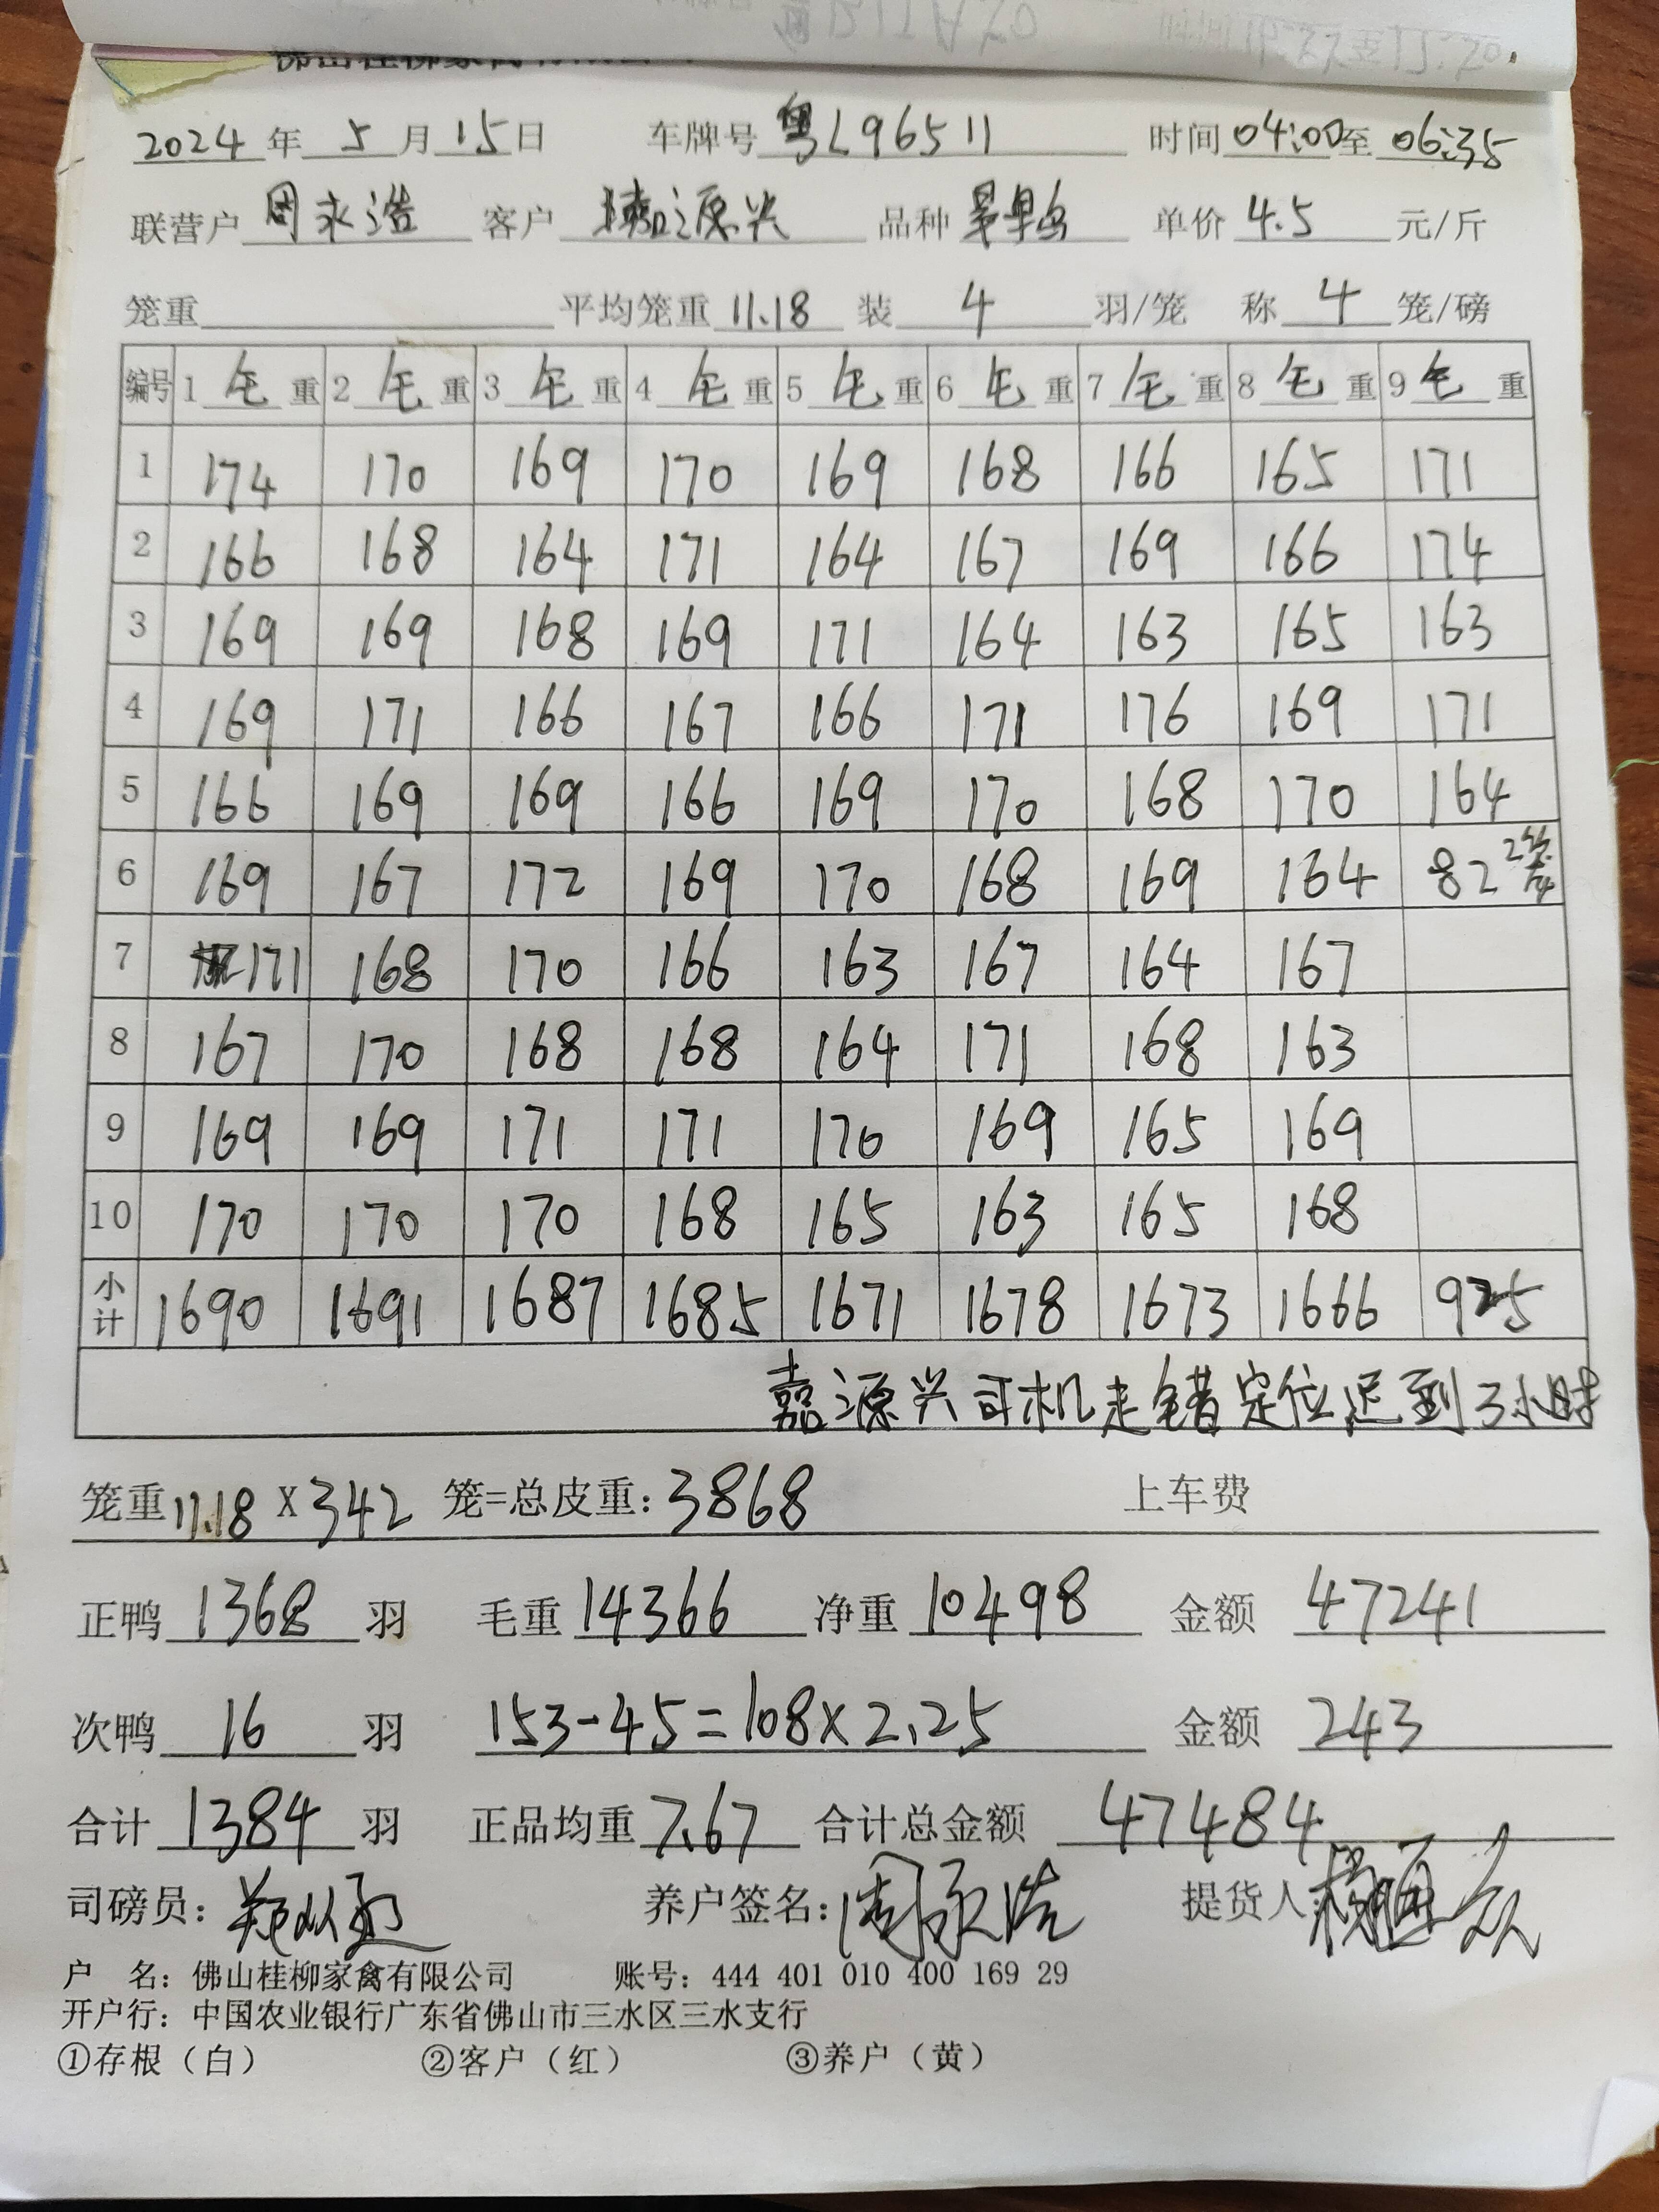 2024年5月15日 车牌号 粤L96511 时间 04:00至 06:35
联营户 周永浩 客户 嘉源兴 品种 单价 4.5 元/斤
笼重 平均笼重 11.18 装 4 羽/笼 称 4 笼/磅
编号 1 毛 重 2 毛 重 3 毛 重 4 毛 重 5 毛 重 6 毛 重 7 毛 重 8 毛 重 9 毛 重
1 174 170 169 170 169 168 166 165 171
2 166 168 164 171 164 167 169 166 174
3 169 169 168 169 171 164 163 165 163
4 169 171 166 167 166 171 176 169 171
5 166 169 169 166 169 170 168 170 164
6 169 167 172 169 170 168 169 164 82 2笼
7 171 168 170 166 163 167 164 167
8 167 170 168 168 164 171 168 163
9 169 169 171 171 170 169 165 169
10 170 170 170 168 165 163 165 168
小计 1690 1691 1687 1685 1671 1678 1673 1666 925
嘉源兴司机走错定位迟到3小时
笼重 11.18 X 342 笼=总皮重: 3868 上车费
正鸭 1368 羽 毛重 14366 净重 10498 金额 47241
次鸭 16 羽 153-45=108×2.25 金额 243
合计 1384 羽 正品均重 7.67 合计总金额 47484
司磅员: 养户签名: 周永浩 提货人
户 名: 佛山桂柳家禽有限公司 账号: 444 401 010 400 169 29
开户行: 中国农业银行广东省佛山市三水区三水支行
①存根（白） ②客户（红） ③养户（黄）